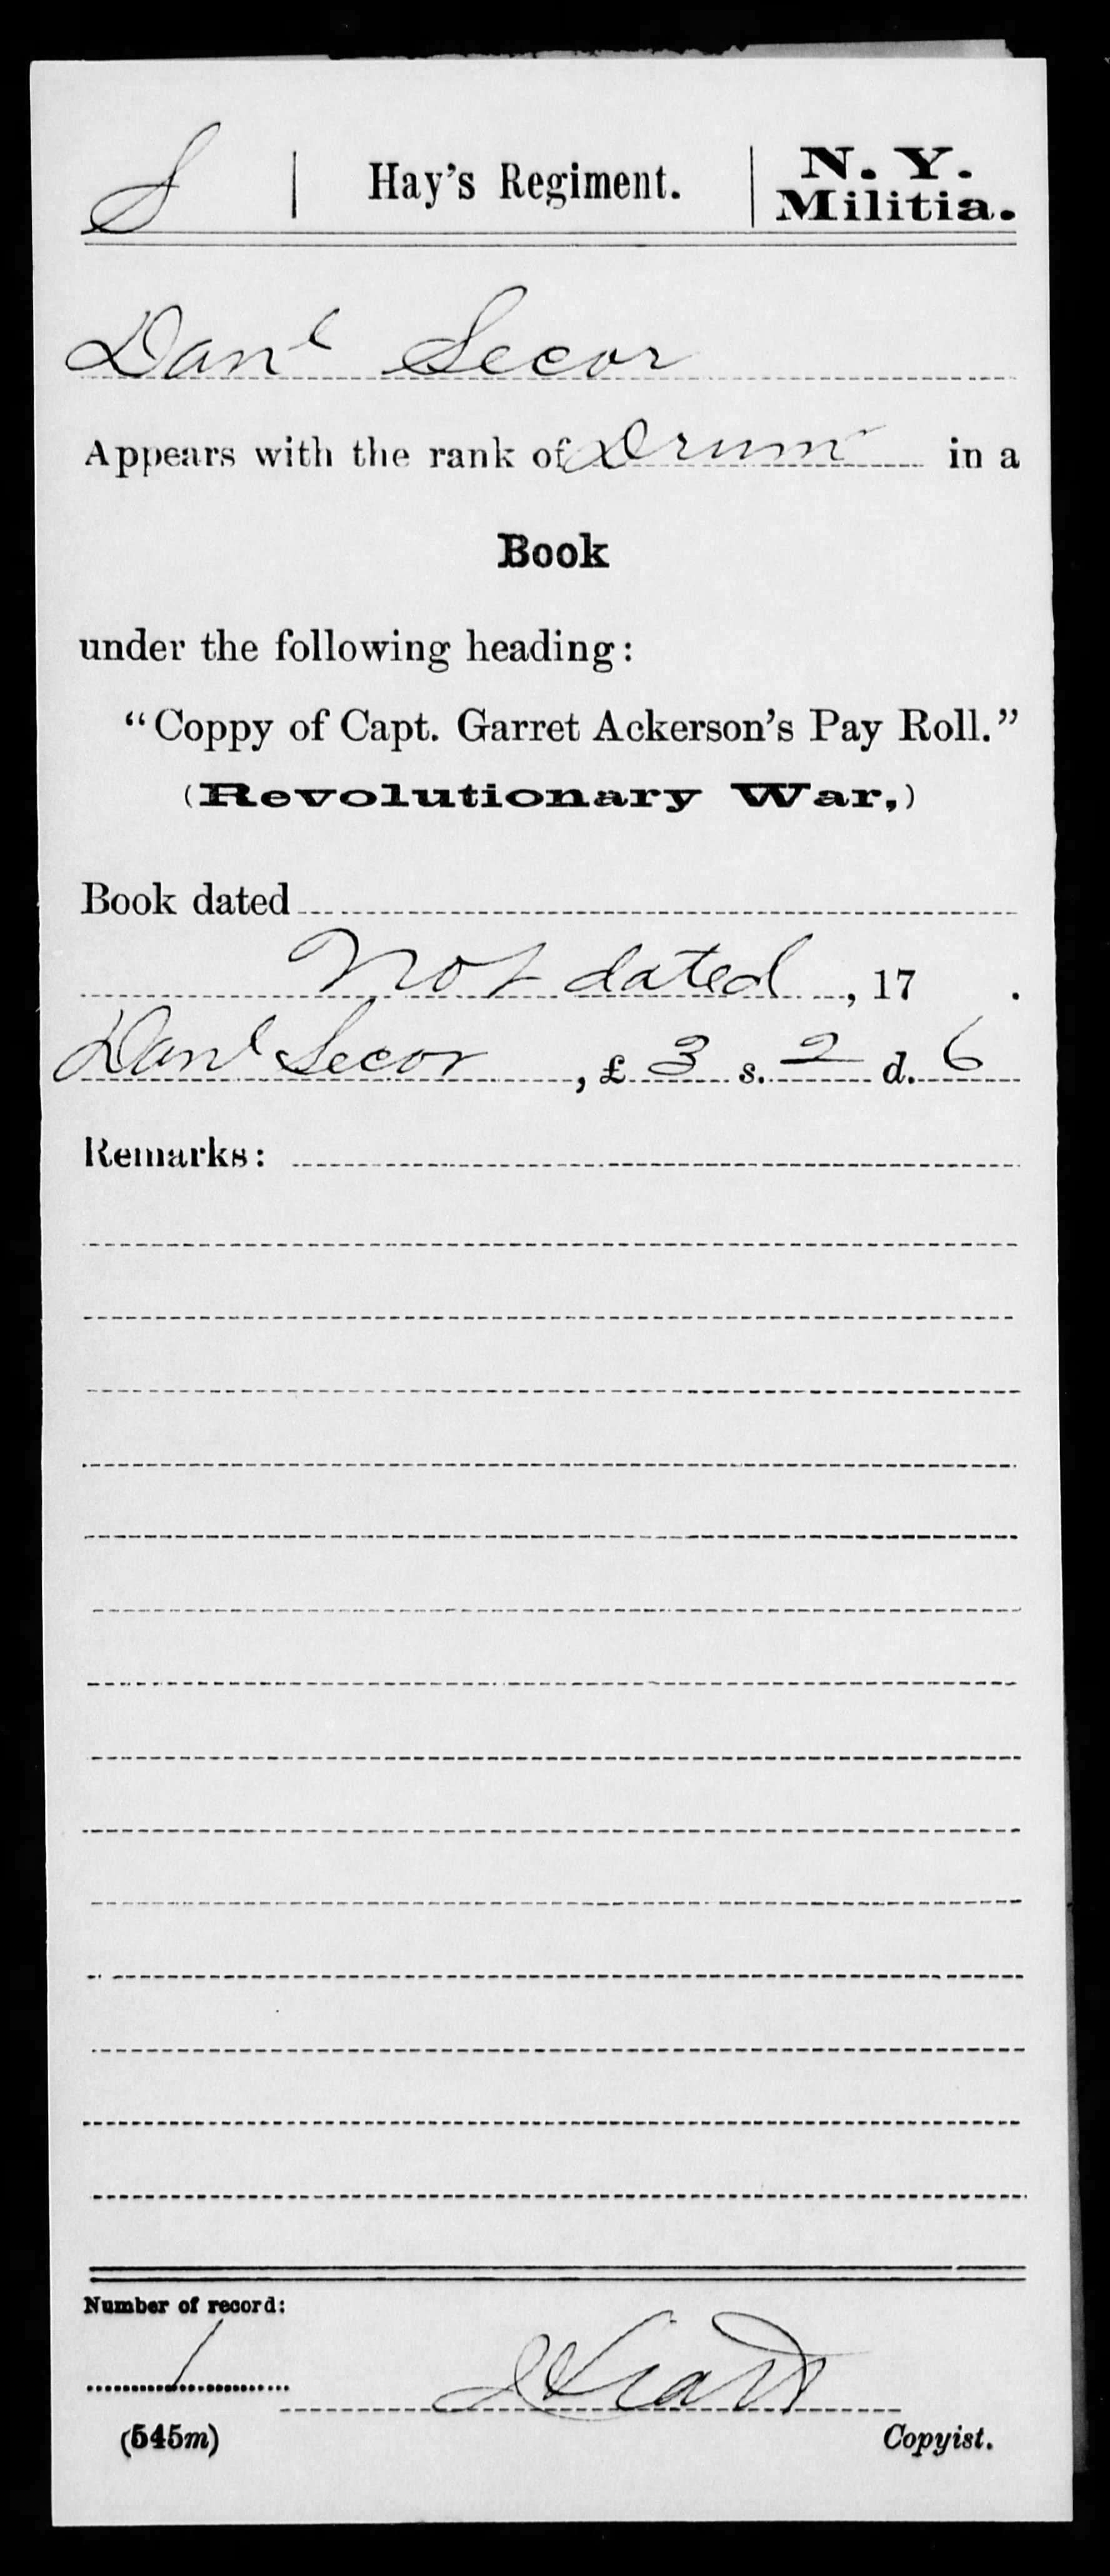 S | Hay's Regiment. | N. Y. Militia.
Danl Secor
Appears with the rank of Drum in a
Book
under the following heading:
"Coppy of Capt. Garret Ackerson's Pay Roll."
(Revolutionary War,)
Book dated
Not dated, 17 .
Danl Secor, £ 3 s. 2 d. 6
Remarks:
Number of record:
1
(545m) Copyist.